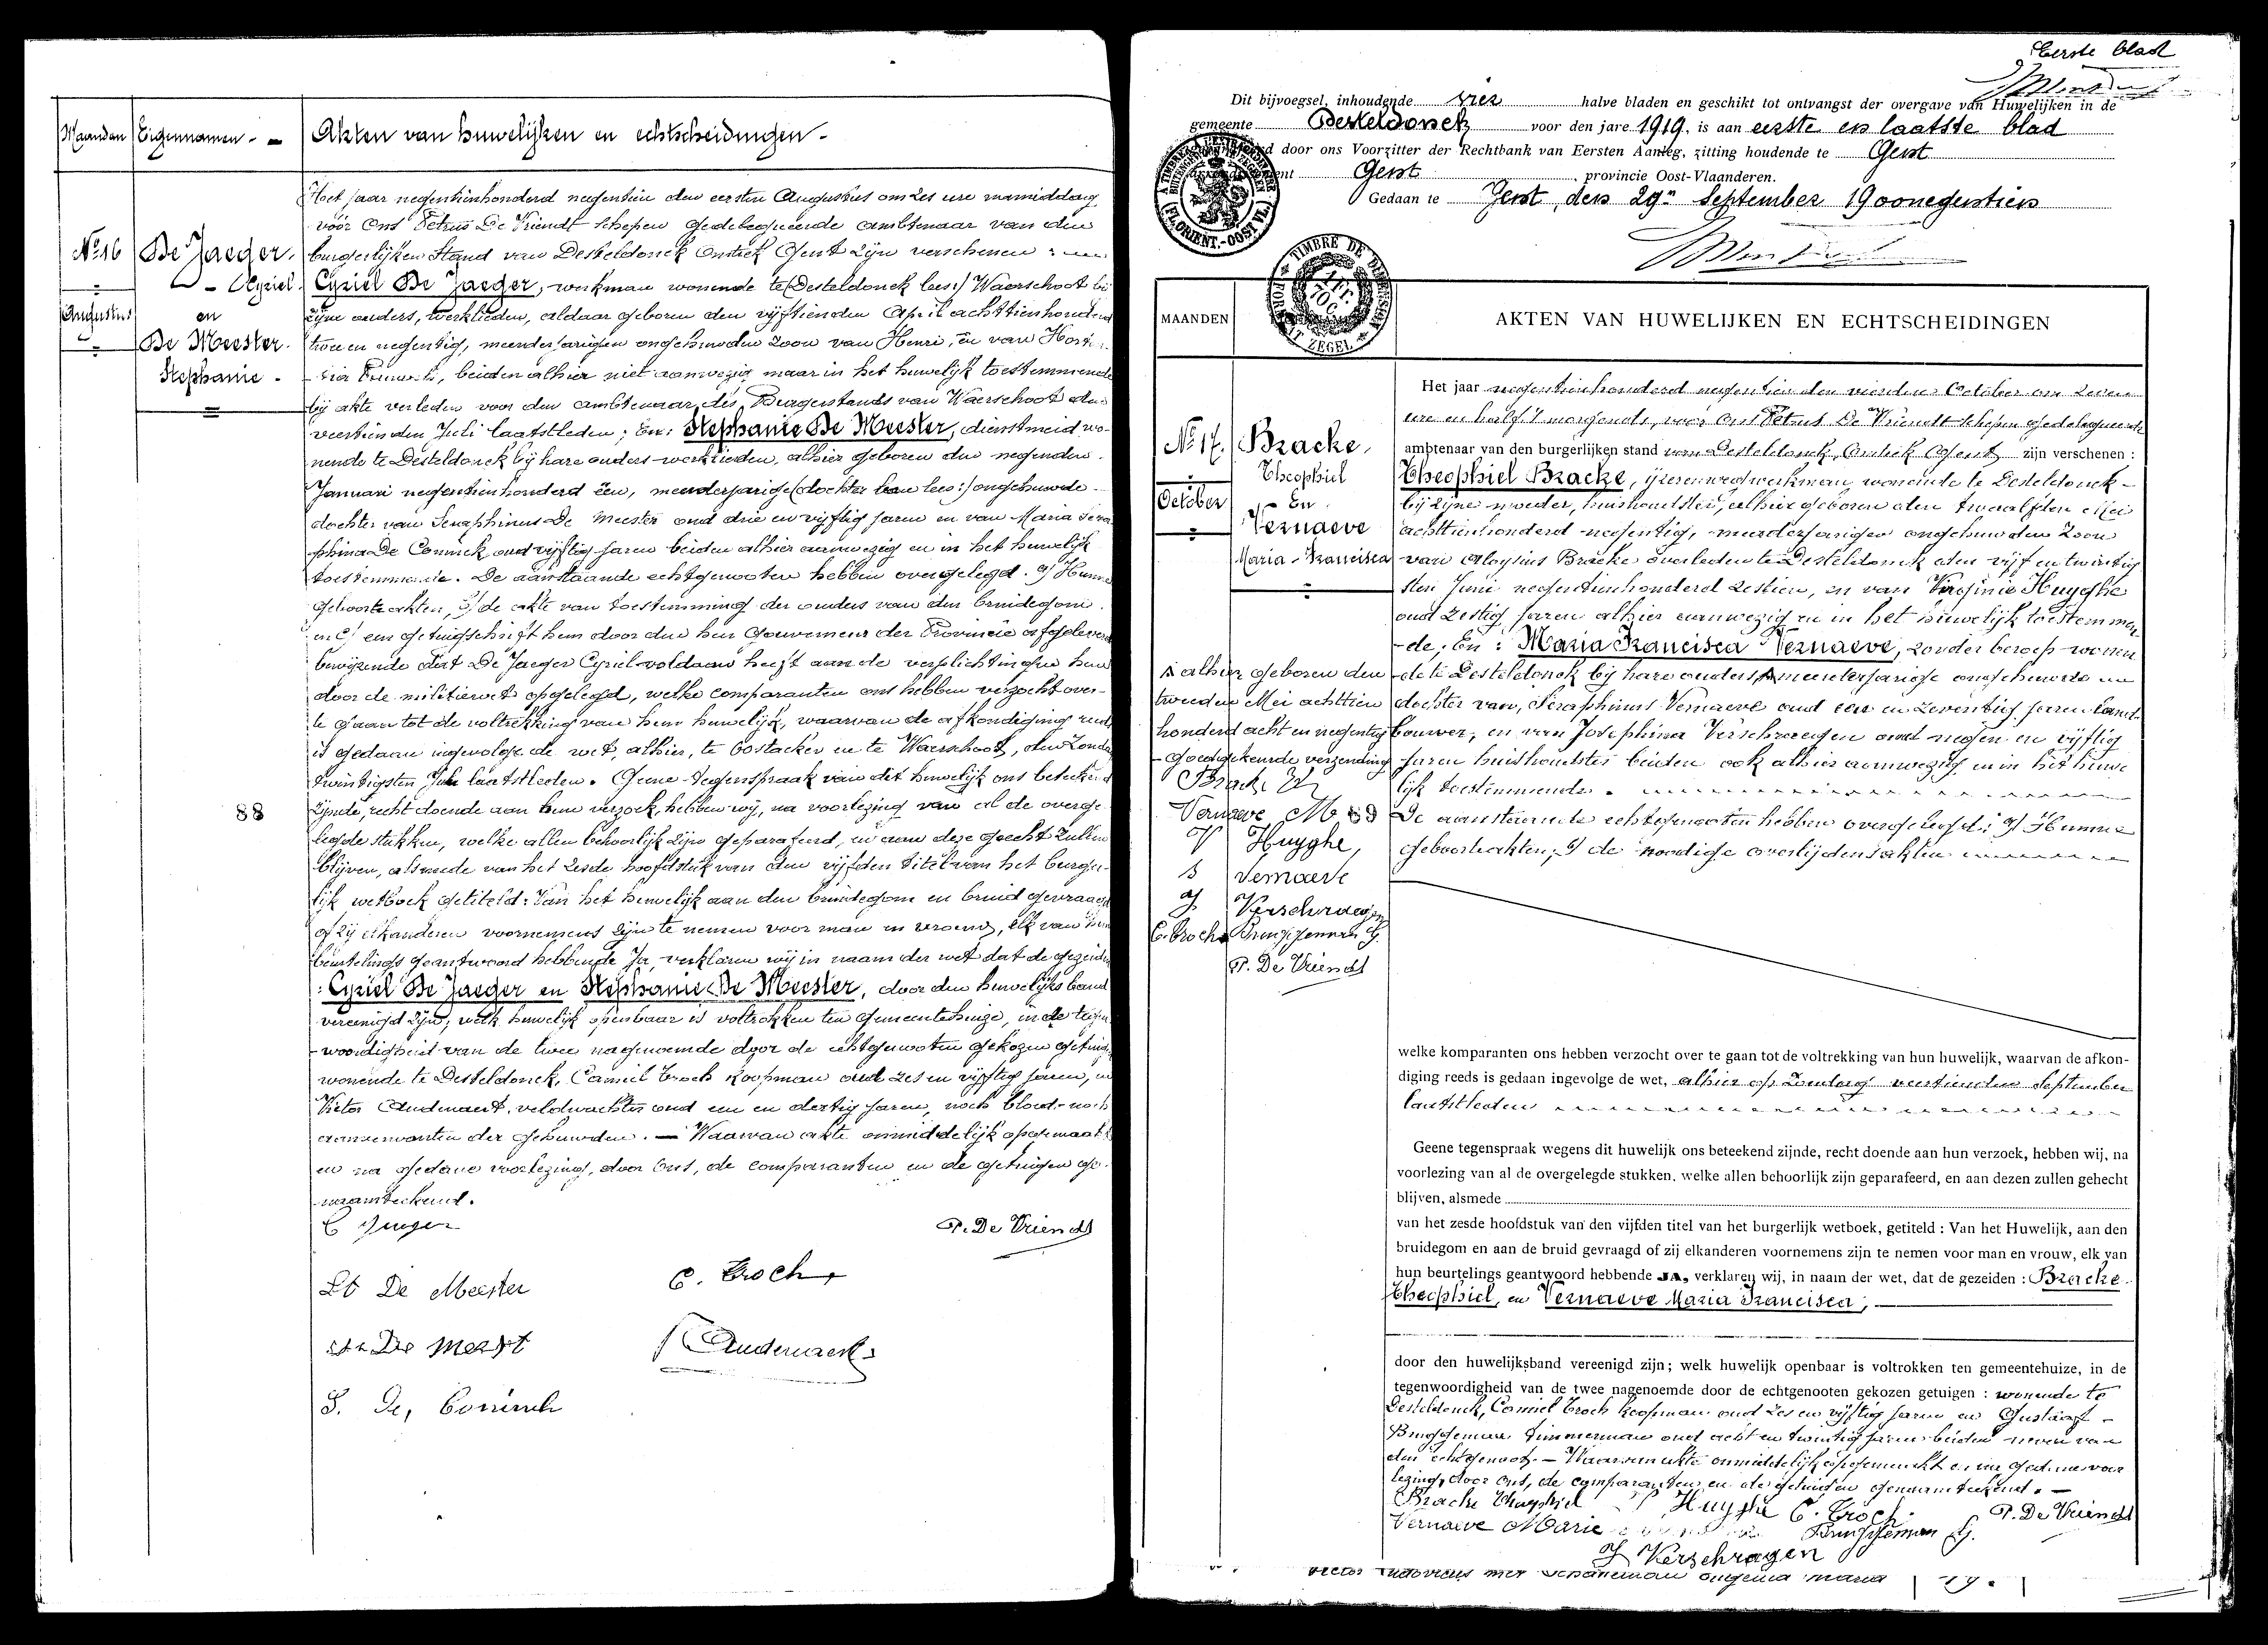 Maanden Eigennamen - Akten van huwelijken en echtscheidingen -
Het jaar negentienhonderd negentien den eersten Augustus om zes ure namiddag
vóór Ons Petrus De Vriendt schepen gedelegueerde ambtenaar van den
burgerlijken Stand van Desteldonck Gent zijn verschenen :
Nº 16
De Jaeger.
- Cyriel.
Augustus
en
De Meester.
Stephanie -
Cyriel De Jaeger, werkman wonende te (Desteldonck lees:) Waerschoot bij
zijne ouders, werklieden, aldaar geboren den vijftienden April achttienhonderd
twee en negentig, meerderjarigen ongehuwden zoon van Henri, en van
beiden alhier niet aanwezig maar in het huwelijk toestemmende
bij akte verleden voor den ambtenaar des Burgerstands van Waerschoot den
veertienden Juli laatstleden; En: Stephanie De Meester, dienstmeid wo-
nende te Desteldonck bij hare ouders werklieden, alhier geboren den negenden
Januari negentienhonderd één, meerderjarige (dochter van lees:) ongehuwde
dochter van Seraphinus De Meester oud drie en vijftig jaren en van Maria Sera
phina De Coninck oud vijftig jaren beiden alhier aanwezig en in het huwelijk
toestemmende. De aanstaande echtgenooten hebben overgelegd. Hunne
geboorteakten, de akte van toestemming der ouders van den bruidegom
en een getuigschrift hem door den heer Gouverneur der Provincie afgeleverd
bewijzende dat De Jaeger Cyriel voldaan heeft aan de verplichtingen hem
door de militiewet opgelegd, welke comparanten ons hebben verzocht over-
te gaan tot de voltrekking van hun huwelijk, waarvan de afkondiging reeds
is gedaan ingevolge de wet, alhier, te Oostacker en te Waerschoot, den Zondag
twintigsten Juli laatstleden. Geene tegenspraak van dit huwelijk ons beteekend
zijnde, recht doende aan hun verzoek, hebben wij, na voorlezing van al de overge
legde stukken, welke allen behoorlijk zijn geparafeerd, en aan deze gehecht zullen
blijven, alsmede van het zesde hoofdstuk van den vijfden titel van het burger-
lijk wetboek getiteld: Van het huwelijk aan den bruidegom en bruid gevraagd
of zij elkanderen voornemens zijn te nemen voor man en vrouw, elk van hun
beurtelings geantwoord hebbende Ja, verklaren wij in naam der wet dat de gezeiden
: Cyriel De Jaeger en Stephanie De Meester, door den huwelijks band
vereenigd zijn; welk huwelijk openbaar is voltrokken ten gemeentehuize, in de tegen
woordigheid van de twee nagenoemde door de echtgenooten gekozen getuigen
wonende te Desteldonck, Camiel Croch koopman oud zes en vijftig jaren, en
Victor Audenaert, veldwachter oud een en dertig jaren, noch bloed- noch
aanverwanten der gehuwden. — Waarvan akte onmiddelijk opgemaakt
en na gedane voorlezing, door Ons, de comparanten en de getuigen ge-
naamteekend.
88
C Jaeger
P. De Vriendt
St De Meester
C. Croch
De Meest
Audenaert
S. De Coninck
Eerste blad
Dit bijvoegsel, inhoudende vier halve bladen en geschikt tot ontvangst der overgave van Huwelijken in de
gemeente Desteldonck voor den jare 1919, is aan eerste en laatste blad
door ons Voorzitter der Rechtbank van Eersten Aanleg, zitting houdende te Gent
Gent, provincie Oost-Vlaanderen.
Gedaan te Gent, den 29n September 1900negentien
(FLORIENT.-OOST VL.)
TIMBRE DE DIMENSION
ZEGEL
MAANDEN
AKTEN VAN HUWELIJKEN EN ECHTSCHEIDINGEN
Nº 17.
Bracke,
Theophiel
October
En
Vernaeve
Maria-Francisca
Het jaar negentienhonderd negentien den vierden October om zeven
ure en half 's morgends, voor Ons Petrus De Vriendt schepen gedelegueerde
ambtenaar van den burgerlijken stand van Desteldonck, Gent zijn verschenen :
Theophiel Bracke, ijzerenwegwerkman, wonende te Desteldonck -
bij zijne moeder, huishoudster, alhier geboren den twaalfden Mei
achttienhonderd negentig, meerderjarigen ongehuwden zoon
van Aloysius Bracke overleden te Desteldonck den vijf en twintig
sten Juni negentienhonderd zestien, en van Virginie Huyghe
oud zestig jaren alhier aanwezig en in het huwelijk toestemmen
-de. En : Maria Francisca Vernaeve, zonder beroep wonen
-de te Desteldonck bij hare ouders, meerderjarige ongehuwde
dochter van, Seraphinus Vernaeve oud een en zeventig jaren land-
bouwer, en van Josephina Verschraegen oud negen en vijftig
jaren huishoudster beiden ook alhier aanwezig en in het huwe
lijk toestemmende.
De aanstaande echtgenooten hebben overgelegd: Hunne
geboorteakten; de noodige overlijdensakten
alhier geboren den
tweeden Mei achttien
honderd acht en negentig
- Goedgekeurde verzending
Vernaeve M
V Huyghe,
S Vernaeve
J. Verschraegen
C. Croch Bruggeman G.
P. De Vriendt
welke komparanten ons hebben verzocht over te gaan tot de voltrekking van hun huwelijk, waarvan de afkon-
diging reeds is gedaan ingevolge de wet, alhier op Zondag veertienden September
laatstleden
Geene tegenspraak wegens dit huwelijk ons beteekend zijnde, recht doende aan hun verzoek, hebben wij, na
voorlezing van al de overgelegde stukken. welke allen behoorlijk zijn geparafeerd, en aan dezen zullen gehecht
blijven, alsmede
van het zesde hoofdstuk van den vijfden titel van het burgerlijk wetboek, getiteld : Van het Huwelijk, aan den
bruidegom en aan de bruid gevraagd of zij elkanderen voornemens zijn te nemen voor man en vrouw, elk van
hun beurtelings geantwoord hebbende JA, verklaren wij, in naam der wet, dat de gezeiden : Bracke
Theophiel, en Vernaeve Maria Francisca,
door den huwelijksband vereenigd zijn; welk huwelijk openbaar is voltrokken ten gemeentehuize, in de
tegenwoordigheid van de twee nagenoemde door de echtgenooten gekozen getuigen : wonende te
Desteldonck, Camiel Croch koopman oud zes en vijftig jaren en Gustaaf -
Bruggeman timmerman oud acht en twintig jaren beiden neven van
den echtgenoot. — Waarvan akte onmiddelijk opgemaakt en na gedane voor
lezing, door Ons, de comparanten en de getuigen genaamteekend. —
Bracke Theophiel V Huyghe C. Croch P. De Vriendt
Vernaeve Marie Bruggeman G.
J Verschragen